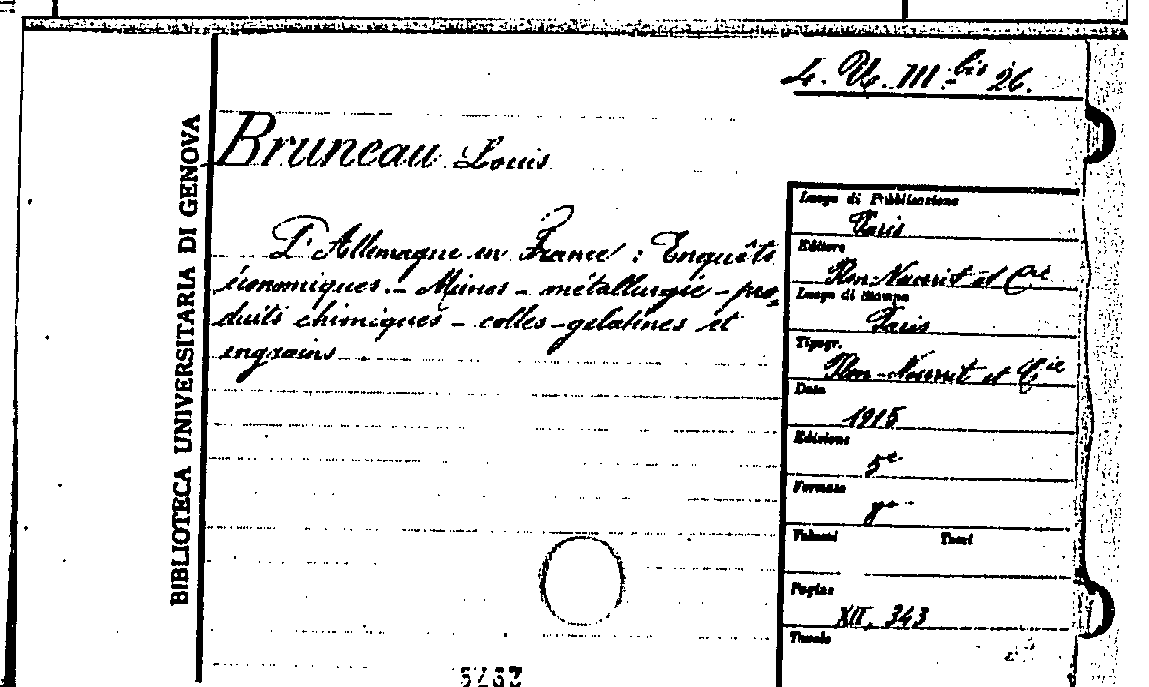 4. V. III bis 26.
BIBLIOTECA UNIVERSITARIA DI GENOVA
Bruneau Louis
L'Allemagne en France : Enquêts
économiques. - Mines - métallurgie - pro-
duits chimiques - colles - gelatines et
engrains
Luogo di Pubblicazione
Paris
Editore
Plon-Nourrit et Cie
Luogo di stampa
Paris
Tipogr.
Plon-Nourrit et Cie
Data
1915
Edizione
5e
Formato
8°
Volumi Tomi
Pagine
XII, 343
Tavole